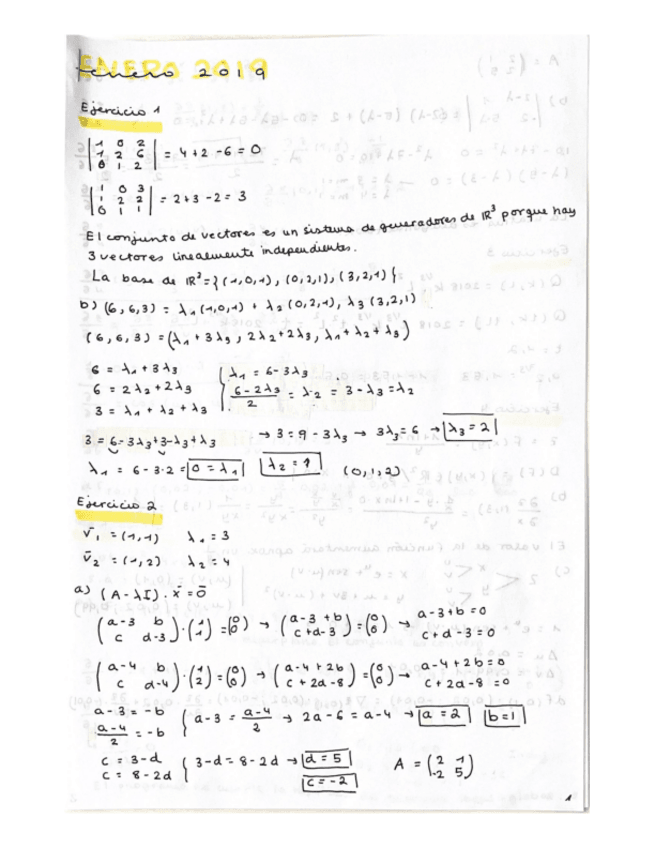 ENERO 2019
Ejercicio 1
|1 0 2|
|1 2 6| = 4+2-6=0
|0 1 2|
|1 0 3|
|1 2 2| = 2+3-2=3
|0 1 1|
El conjunto de vectores es un sistema de generadores de IR³ porque hay
3 vectores linealmente independientes.
La base de IR³={(1,0,1), (0,2,1), (3,2,1)}
b) (6,6,3) = λ1(1,0,1) + λ2(0,2,1), λ3(3,2,1)
(6,6,3) = (λ1+3λ3, 2λ2+2λ3, λ1+λ2+λ3)
6 = λ1+3λ3 { λ1 = 6-3λ3
6 = 2λ2+2λ3 { (6-2λ3)/2 = λ2 = 3-λ3=λ2
3 = λ1+λ2+λ3
3 = 6-3λ3+3-λ3+λ3 → 3=9-3λ3 → 3λ3=6 → λ3=2
λ1 = 6-3·2 = 0 = λ1 λ2 = 1 (0,1,2)
Ejercicio 2
v̄1 = (1,1) λ1 = 3
v̄2 = (1,2) λ2 = 4
a) (A-λI)·x̄=ō
(a-3 b / c d-3)·(1 / 1)=(0 / 0) → (a-3+b / c+d-3)=(0 / 0) → a-3+b=0
c+d-3=0
(a-4 b / c d-4)·(1 / 2)=(0 / 0) → (a-4+2b / c+2d-8)=(0 / 0) → a-4+2b=0
c+2d-8=0
a-3=-b { a-3 = (a-4)/2 → 2a-6=a-4 → a=2 b=1
(a-4)/2 = -b
c = 3-d { 3-d=8-2d → d=5 A = (2 1 / -2 5)
c = 8-2d c=-2
1